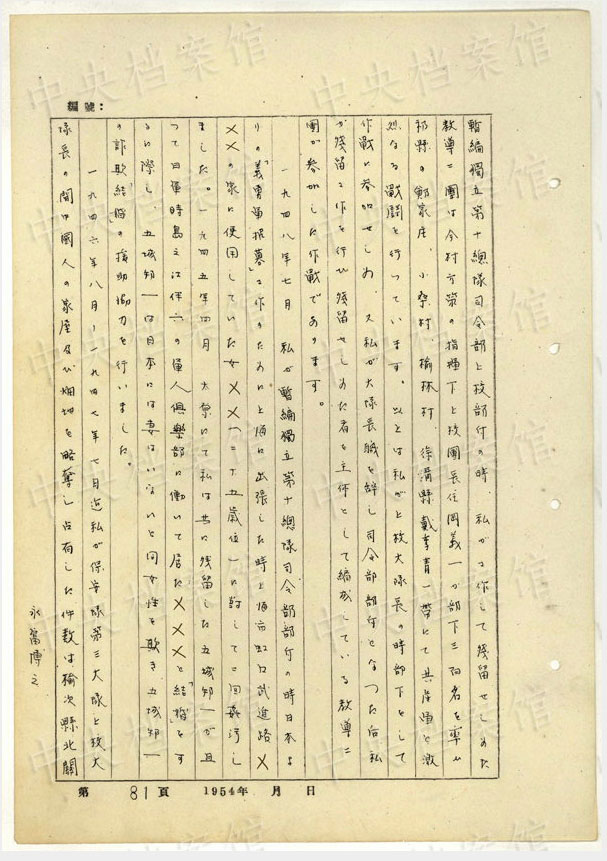 編號：
暫編獨立第十總隊司令部上校部付の時、私が工作して残留せしめた
教導二團は今村方策の指揮下上校團長住岡義一が部下三百名を率い
祁縣の鄭家庄、小桑村、榆林村、徐溝縣戴李青一帯にて共産軍と激
烈なる戰闘を行っています。以上は私が上校大隊長の時部下をして
作戰に参加せしめ、又私が大隊長職を辞し司令部部付となった后私
が残留工作を行い残留せしめた者を主体として編成している教導二
團が参加した作戰であります。
一九四八年七月　私が暫編獨立第十總隊司令部部付の時日本よ
りの「義勇軍招募」工作のために上海に出張した時上海市虹口武進路×
××の家に使用していた女×××（二十五歳位）に対して二回姦汚し
ました。一九四五年四月　太原にて私は共に残留した五城知一が且
って日軍時島之江伴六の軍人倶楽部に働いて居た×××と「結婚」をす
るに際し、五城知一は日本には妻はいないと同女性を欺き五城知一
の詐欺結婚の援助協力を行いました。
一九四六年八月－一九四七年七月迄私が保安隊第三大隊上校大
隊長の間中國人の家屋及び畑地を略奪し占有した件数は榆次縣北關
永富博之
第 81 頁 1954年 月 日
中央档案馆